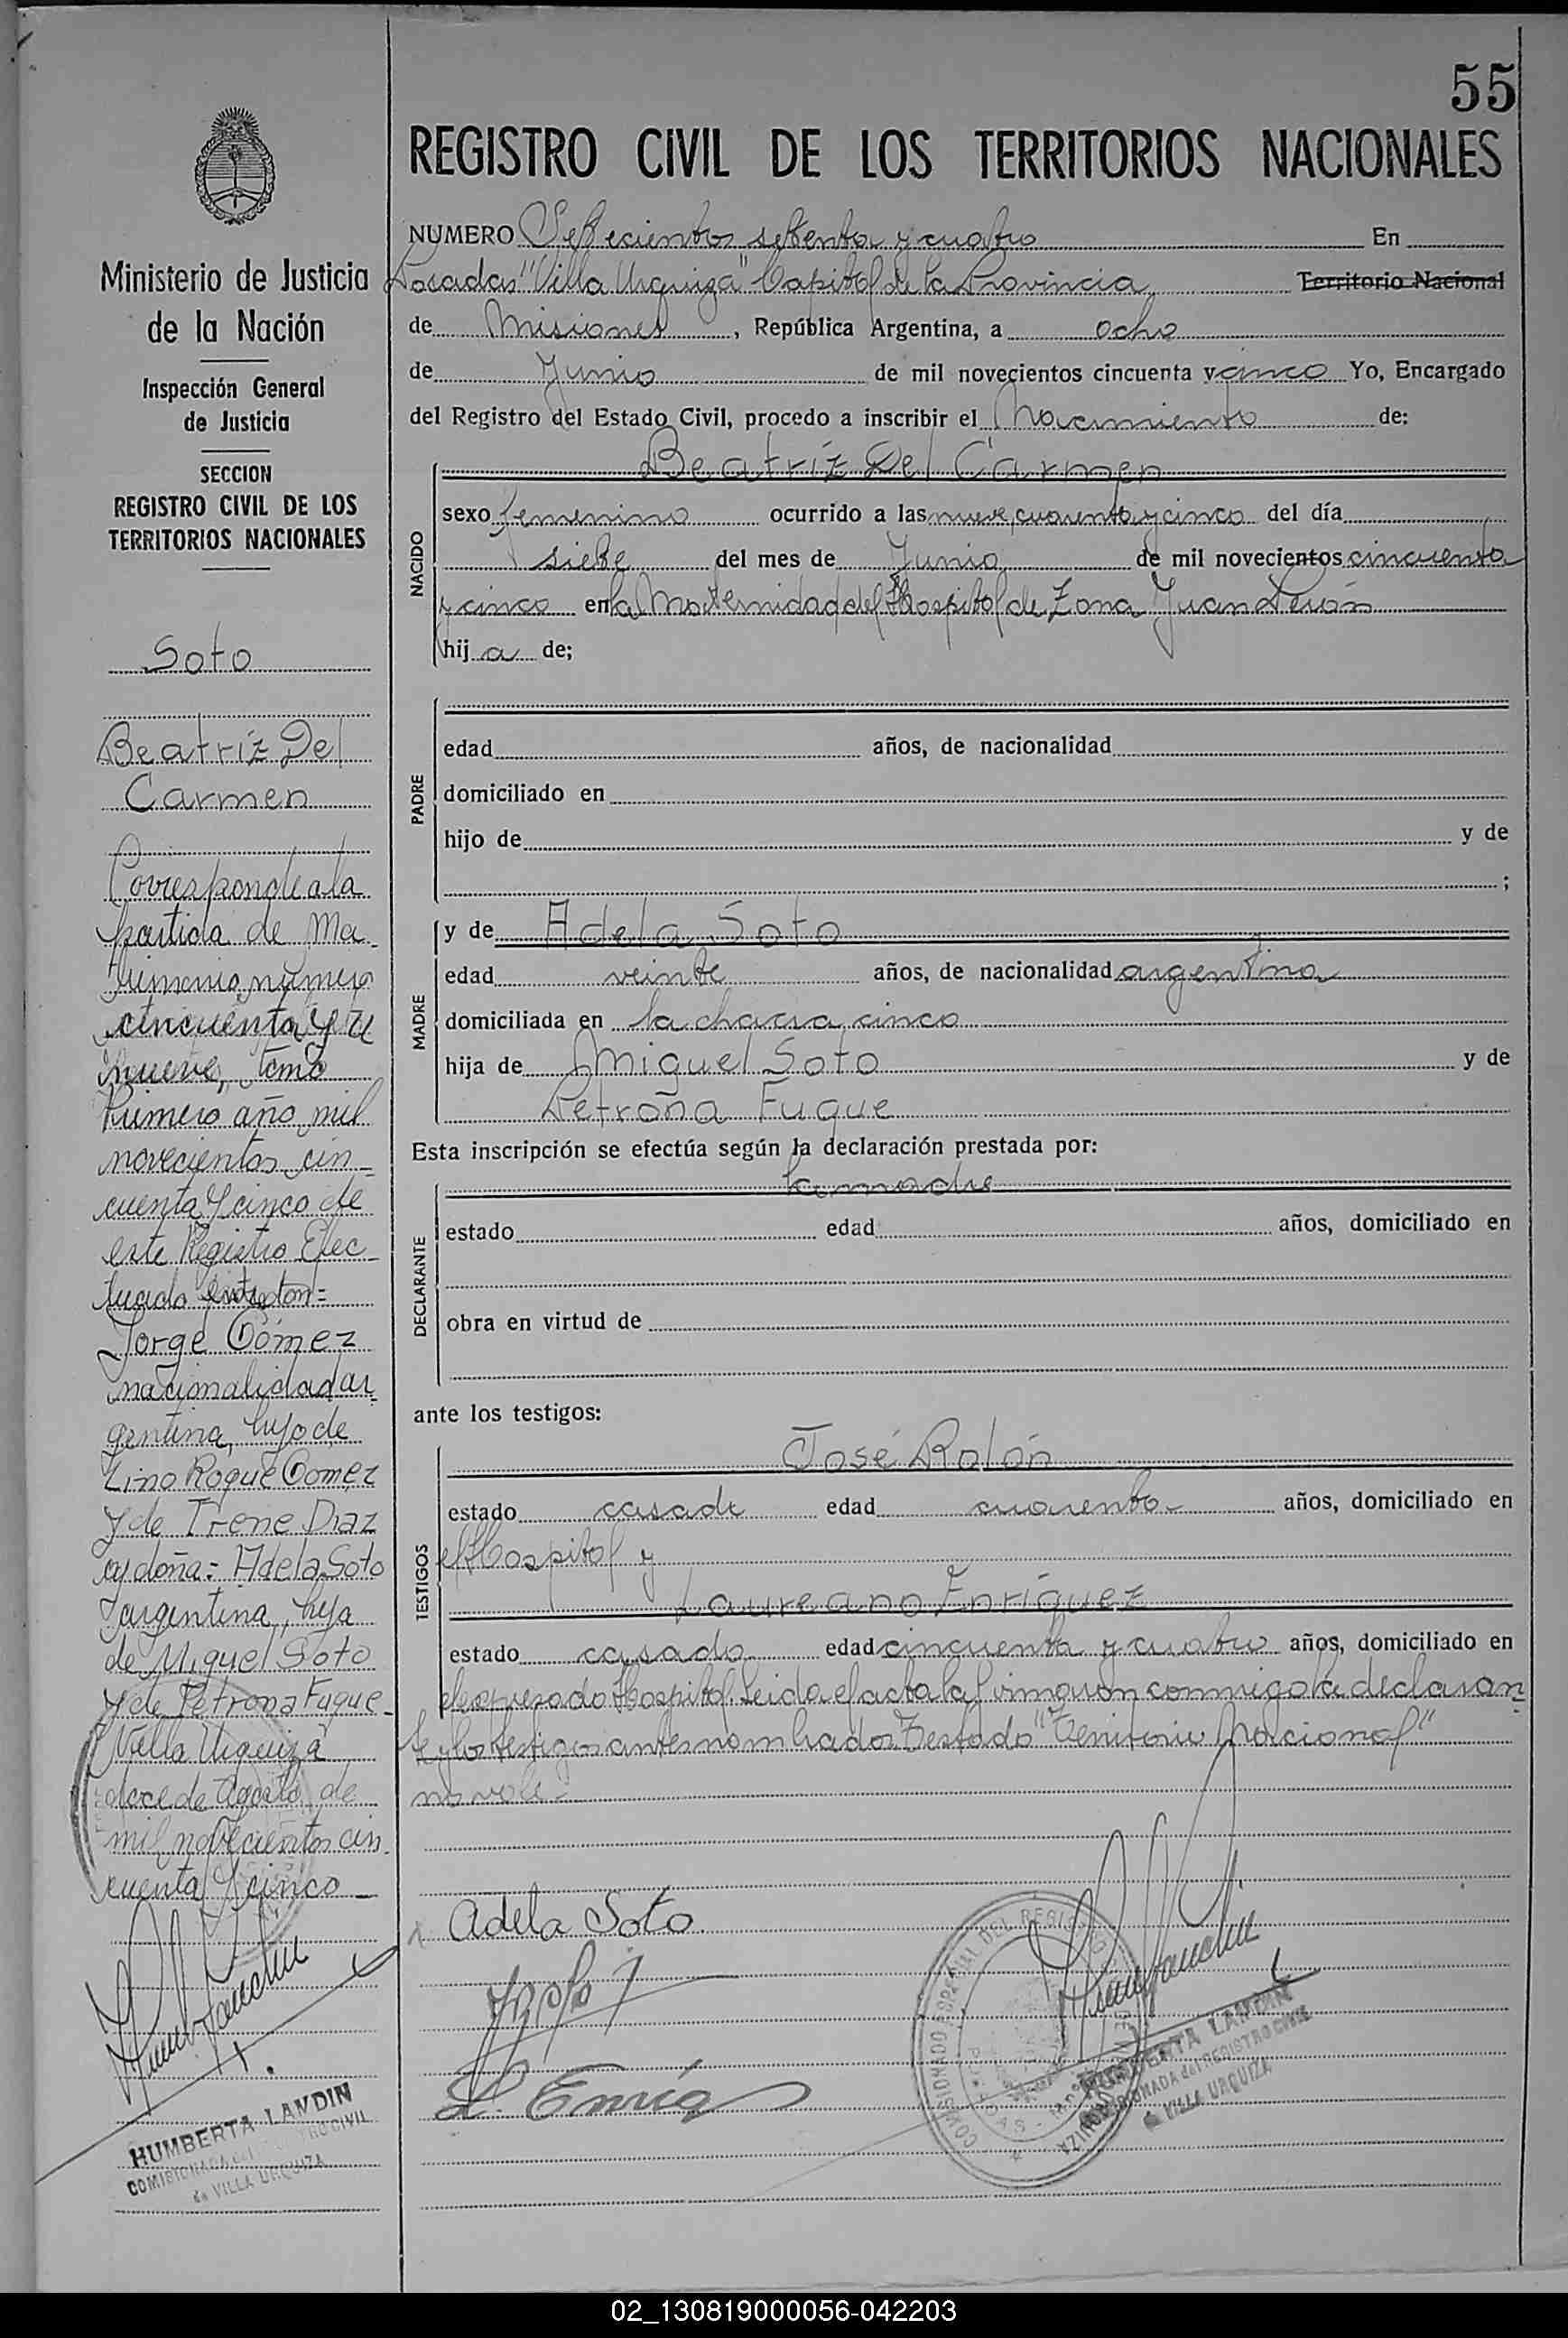 55
REGISTRO CIVIL DE LOS TERRITORIOS NACIONALES
Ministerio de Justicia
de la Nación
Inspección General
de Justicia
SECCION
REGISTRO CIVIL DE LOS
TERRITORIOS NACIONALES
Soto
Beatríz Del
Carmen
Corresponde a la
partida de Ma
trimonio, número
cincuenta y
nueve, tomo
Primero año mil
novecientos cin_
cuenta y cinco de
este Registro Efec
tuado entre don=
Jorge Gómez
nacionalidad ar_
gentina, hijo de
Lino Roque Gomez
y de Irene Diaz
y doña:= Adela Soto
argentina, hija
de Miguel Soto
y de Petrona Fuque_
"Villa Urquiza"
doce de Agosto de
mil novecientos cin_
cuenta y cinco_
HUMBERTA LANDIN
COMISIONADA del REGISTRO CIVIL
de VILLA URQUIZA
NUMERO Setecientos setenta y cuatro En
Posadas "Villa Urquiza" Capital de la Provincia Territorio Nacional
de Misiones, República Argentina, a ocho
de Junio de mil novecientos cincuenta y cinco Yo, Encargado
del Registro del Estado Civil, procedo a inscribir el Nacimiento de:
Beatríz Del Carmen
NACIDO
sexo femenino ocurrido a las nueve, cuarenta y cinco del día
siete del mes de Junio de mil novecientos cincuenta
y cinco en la Maternidad del Hospital de Zona Juan Perón
hij a de;
PADRE
edad años, de nacionalidad
domiciliado en
hijo de y de
;
MADRE
y de Adela Soto
edad veinte años, de nacionalidad argentina
domiciliada en la chacra cinco
hija de Miguel Soto y de
Petrona Fuque
Esta inscripción se efectúa según la declaración prestada por:
la madre
DECLARANTE
estado edad años, domiciliado en
obra en virtud de
ante los testigos:
TESTIGOS
José Rolón
estado casado edad cuarenta años, domiciliado en
el Hospital y
Laureano Enríquez
estado casado edad cincuenta y cuatro años, domiciliado en
el expresado Hospital. Leida el acta la firmaron conmigo la declaran_
te y los testigos antes nombrados Testado "Territorio Nacional"
no vale.-
Adela Soto
L. Enríq
HUMBERTA LANDIN
COMISIONADA del REGISTRO CIVIL
de VILLA URQUIZA
02_130819000056-042203